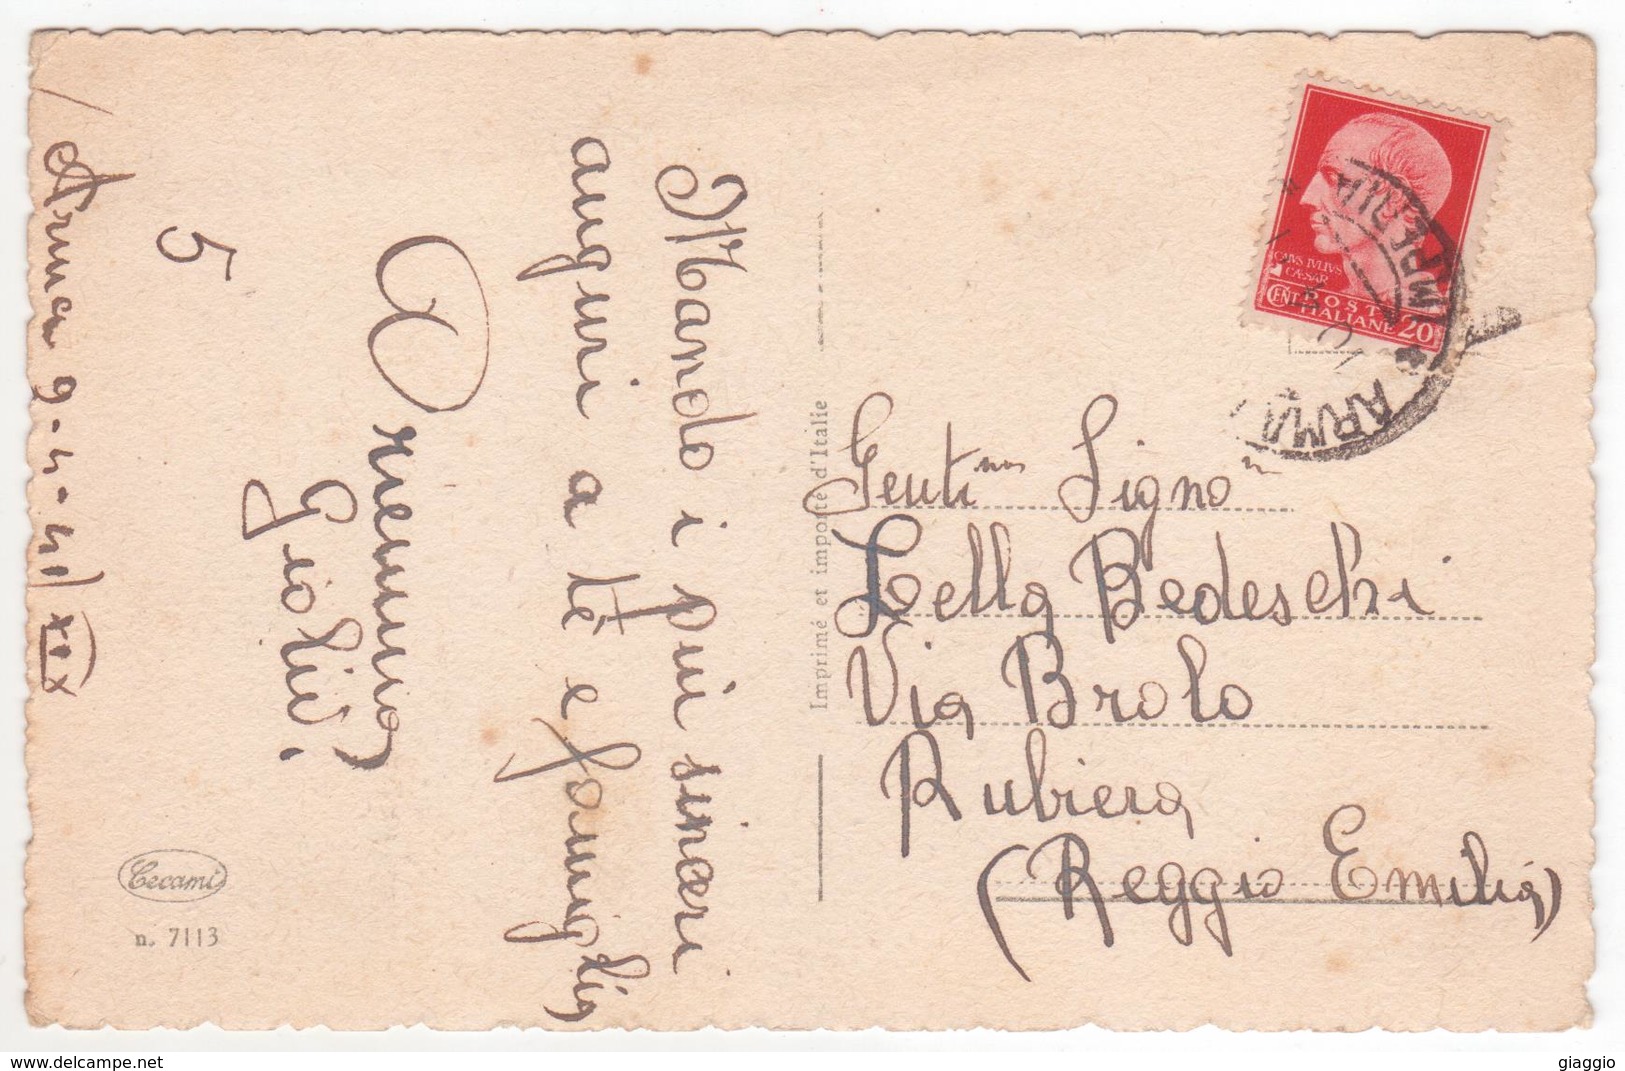 Arma 9-4-41 XIX
5
Mando i più sinceri
auguri a tè e famiglia
Gioli
Tecami
n. 7113
Imprimé et importé d'Italie
CAIVS IVLIVS
CÆSAR
CENT. POSTE 20
ITALIANE
ARMA
IMPERIA
Gentma Signa
Lella Bedeschi
Via Brolo
Rubiera
(Reggio Emilia)
www.delcampe.net
giaggio